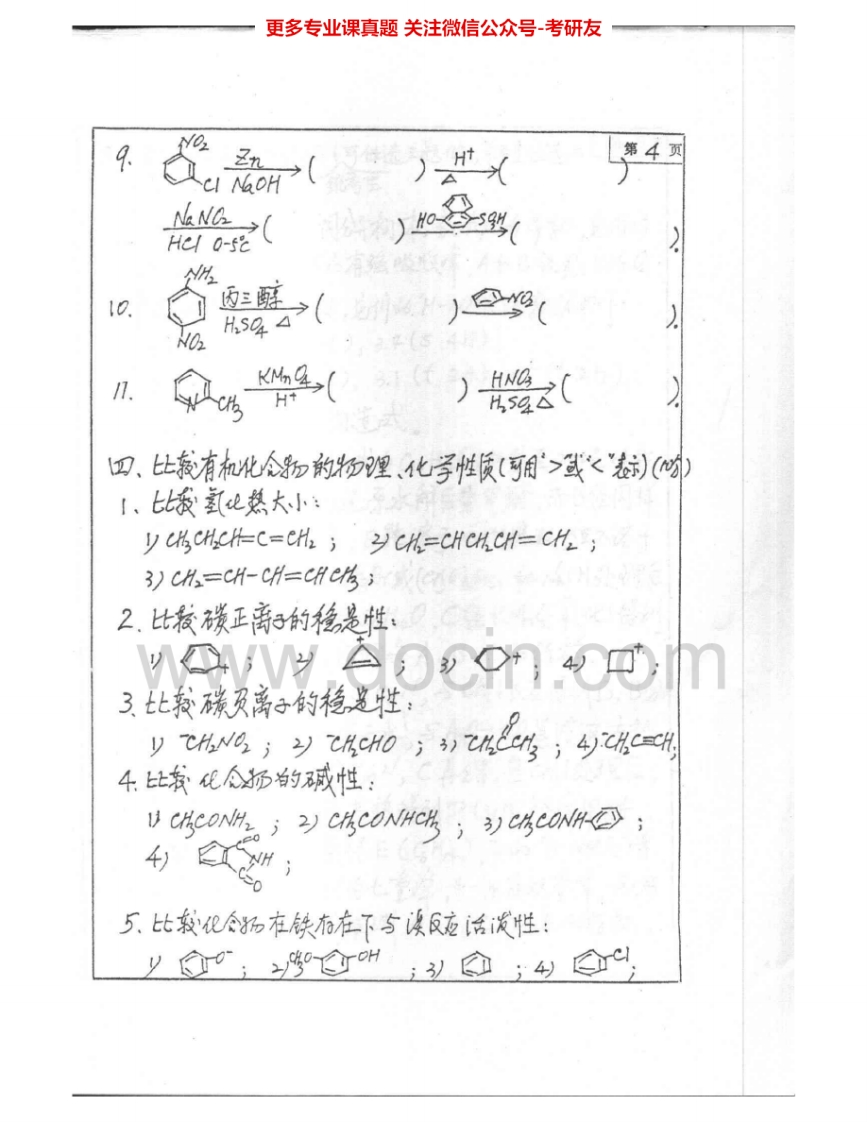 更多专业课真题 关注微信公众号-考研友
第 4 页
9. NO2 Cl Zn NaOH ( ) H+ △ ( )
NaNO2 HCl 0-5℃ ( ) HO SO3H ( ).
10. NH2 NO2 丙三醇 H2SO4 △ ( ) NO2 ( ).
11. N CH3 KMnO4 H+ ( ) HNO3 H2SO4 △ ( ).
四、比较有机化合物的物理、化学性质(可用">"或"<"表示)
1、比较氢化热大小:
1) CH3CH2CH=C=CH2 ; 2) CH2=CHCH2CH=CH2 ;
3) CH2=CH-CH=CHCH3 ;
2、比较碳正离子的稳定性:
1) + ; 2) + ; 3) + ; 4) + ;
www.docin.com
3、比较碳负离子的稳定性:
1) -CH2NO2 ; 2) -CH2CHO ; 3) -CH2CCH3 O ; 4) -CH2C≡CH;
4、比较化合物的碱性:
1) CH3CONH2 ; 2) CH3CONHCH3 ; 3) CH3CONH ;
4) C=O NH C=O ;
5、比较化合物在铁存在下与溴反应活泼性:
1) O- ; 2) CH3O OH ; 3) ; 4) Cl ;